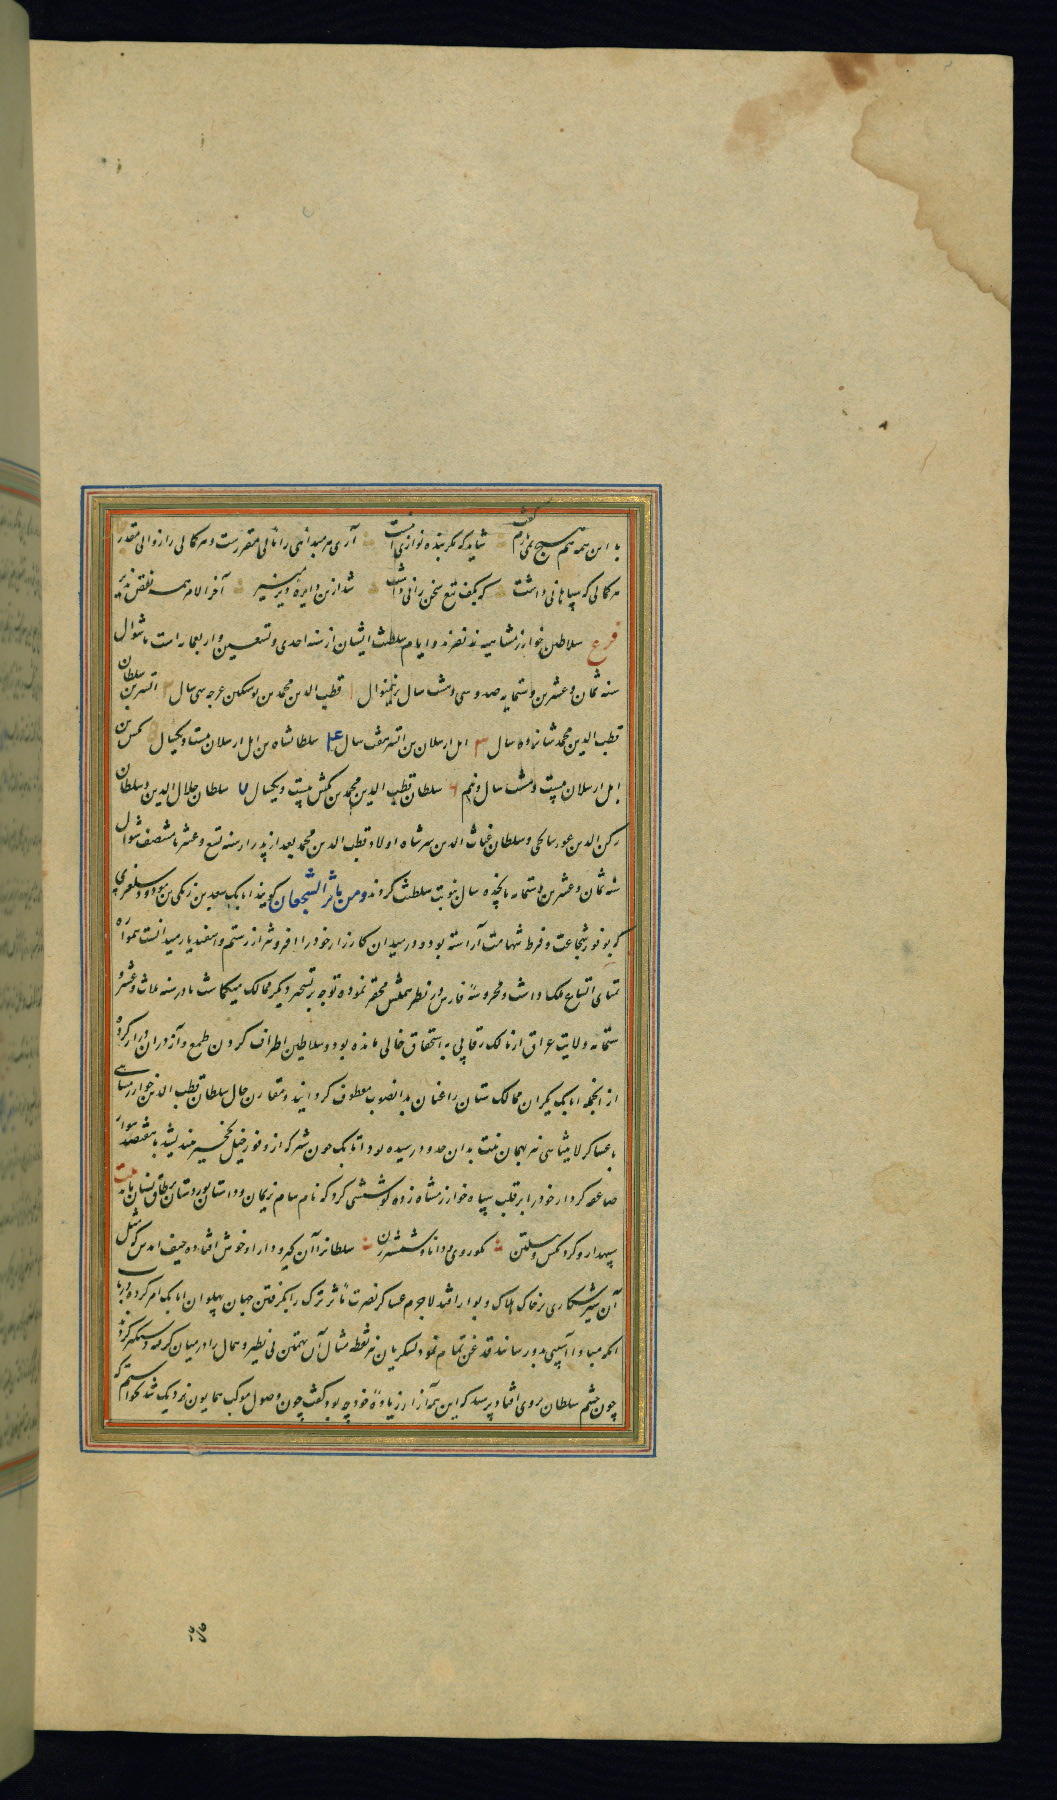 با این همه هم هیچ نمی‌یارم گفت شاید که مگر بنده نوازی اینست آری هر مبدائی را مآلی مقررست و هر کمالی را زوالی مقدر
هر کمالی که سپاهانی داشت که بکف تیغ سخن رانی داشت شد ازین دایرهٔ دیر مسیر آخر الامر همه نقص پذیر
فرع سلاطین خوارزمشاهیه نه نفرند و ایام سلطنت ایشان از سنه احدی و تسعین و اربعمایه است تا شوال
سنه ثمان و عشرین و ستمایه صد و سی و هشت سال برینمنوال ۱ قطب الدین محمد بن نوشتکین غرجه سی سال ۲ اتسز بن سلطان
قطب الدین محمد شانزده سال ۳ ایل ارسلان بن اتسز هفت سال ۴ سلطانشاه بن ایل ارسلان بیست و یکسال تکش بن
ایل ارسلان بیست و هشت سال و نیم ۶ سلطان قطب الدین محمد بن تکش بیست و یکسال ۷ سلطان جلال الدین و سلطان
رکن الدین غورسانجی و سلطان غیاث الدین پیر شاه اولاد قطب الدین محمد بعد از پدر از سنه تسع و عشر تا منتصف شوال
سنه ثمان و عشرین و ستمایه یانجده سال بنوبت سلطنت کردند و من مآثر الشجعان گویند اتابک سعد بن زنگی بن مودود سلغری
که بوفور شجاعت و فرط شهامت آراسته بود و در میدان کارزار خود را افزونتر از رستم و اسفندیار میدانست همواره
تمنای اتساع ملک داشت و محروسهٔ فارس در نظر همتش محقر نموده توجه بر تسخیر دیگر ممالک میگماشت تا در سنه ثلاث و عشر و
ستمایه ولایت عراق از مالک رقابی باستحقاق خالی مانده بود و سلاطین اطراف گردن طمع و آز دران دراز کرده
از انجمله اتابک یکران ممالک ستان را عنان بدانصوب معطوف گردانید و مقارن حال سلطان قطب الدین خوارزمشاهی
با عساکر لایتناهی نیز بهمان نیت بدان حدود رسیده بود اتابک چون شیر که از وفور خیل نخجیر نیندیشد با هفتصد سوار
صاعقه کردار خود را بر قلب سپاه خوارزمشاه زده کوششی کرد که نام سام نریمان و داستان پور دستان بر طاق نسیان ماند بیت
سپهدار و گرد کش و پیلتن نکوروی و دانا و شمشیرزن سلطانرا آن گیرودار او خوش افتاده حیف آمدش که مثل
آن شیر شکاری بر خاک هلاک و بوار افتد لاجرم عساکر نصرت مآثر ترک را بگرفتن جهان پهلوان اتابک امر کرده در باب
آنکه مبادا آسیبی بدو رسانند قدغن تمام نمود لشکریان نیز نقطه مثال آن تهمتن بی نظیر و همال را در میان گرفته دستگیر کردند
چون چشم سلطان بر وی افتاد پرسید که این همه آزار زیاده خود چه بود گفت چون وصول موکب همایون نزدیک شد خواستم که